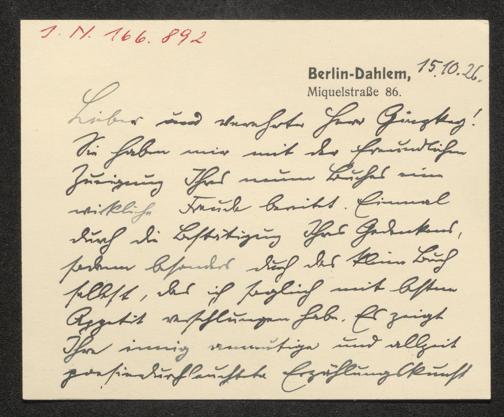 I. N. 166.892
Berlin-Dahlem, 15.10.26.
Miquelstraße 86.
Lieber und verehrter Herr Ginzkey!
Sie haben mir mit der freundlichen
Zueignung Ihres neuen Buches eine
wirkliche Freude bereitet. Einmal
durch die Bestätigung Ihres Gedenkens,
sodann besonders durch das kleine Buch
selbst, das ich sogleich mit bestem
Appetit verschlungen habe. Es zeigt
Ihre innig anmutige und allzeit
poesiedurchleuchtete Erzählungskunst